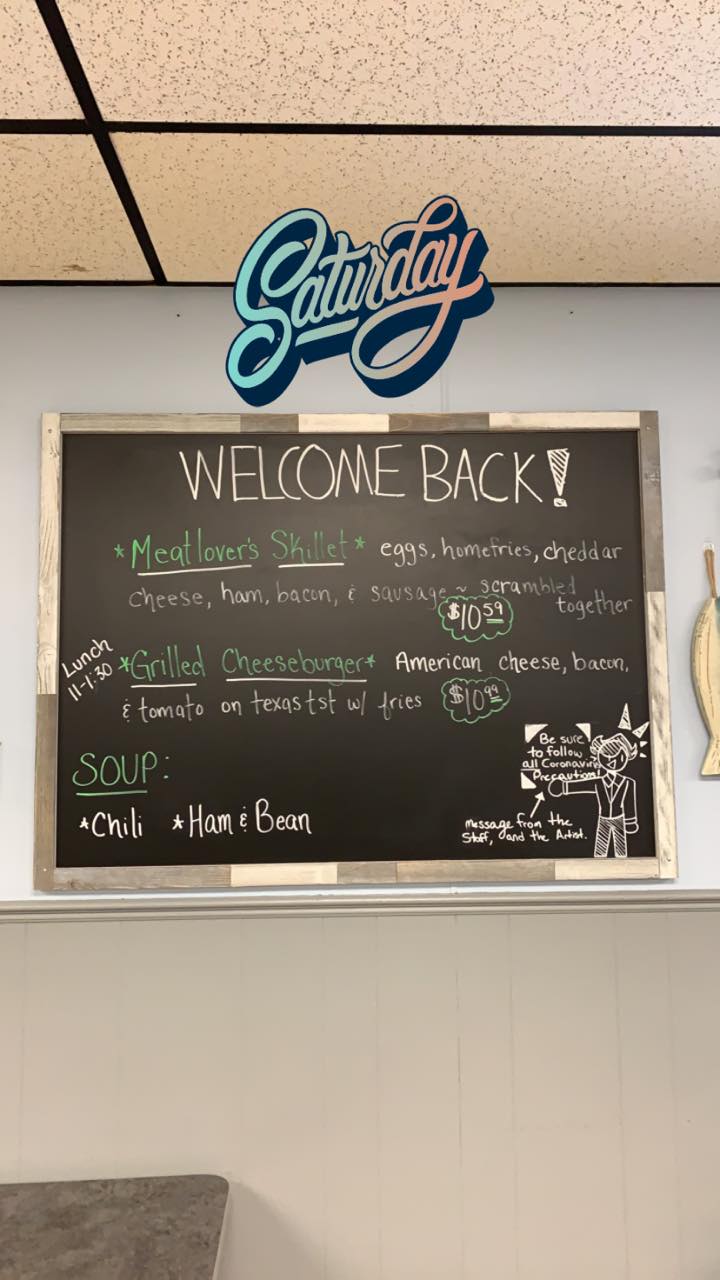 Saturday
WELCOME BACK!
*Meatlover's Skillet* eggs, homefries, cheddar
cheese, ham, bacon, & sausage ~ scrambled
together
$10.59
Lunch
11-1:30
*Grilled Cheeseburger* American cheese, bacon,
& tomato on texas tst w/ fries $10.99
SOUP:
*Chili *Ham & Bean
Be sure
to follow
all Coronavirus
Precautions!
message from the
Staff, and the Artist.